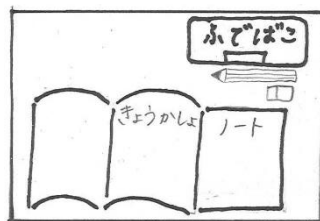 ふでばこ
きょうかしょ
ノート